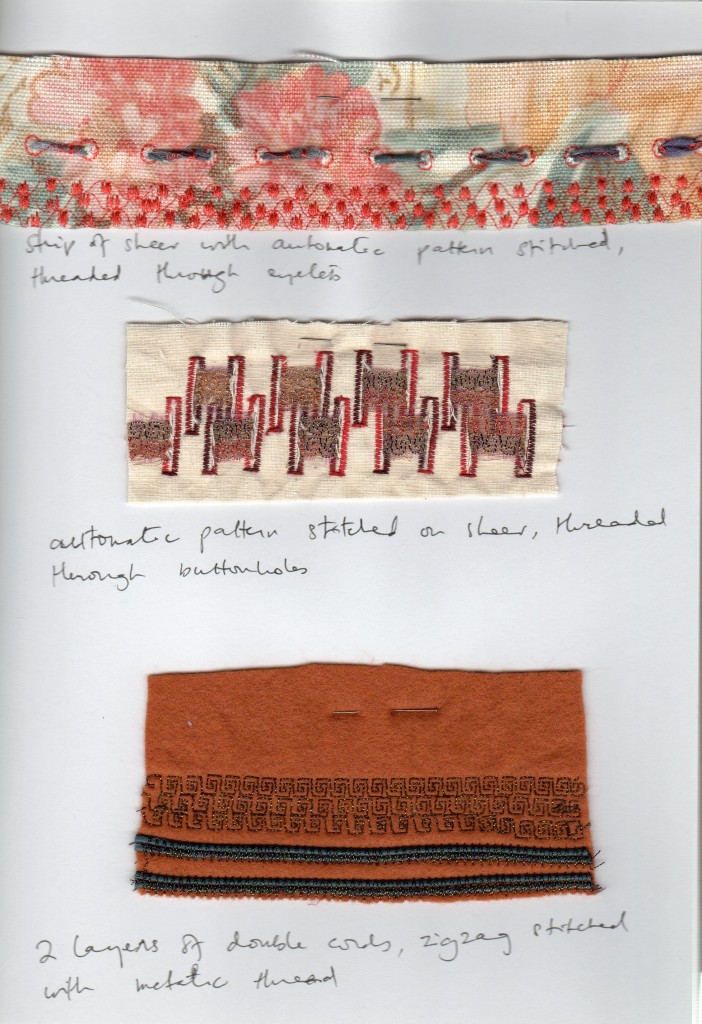 Strip of sheer with automatic pattern stitched,
threaded through eyelets
automatic pattern stitched on sheer, threaded
through buttonholes
2 layers of double cords, zigzag stitched
with metallic thread